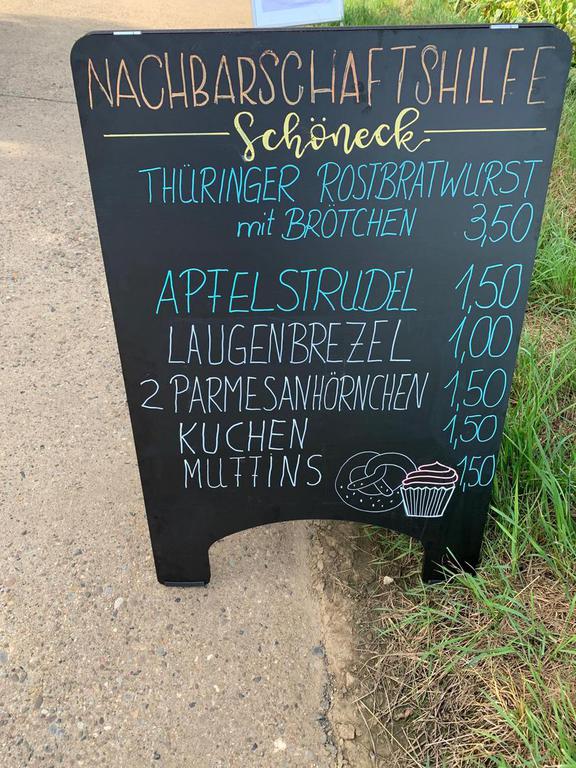 NACHBARSCHAFTSHILFE
Schöneck
THÜRINGER ROSTBRATWURST
mit BRÖTCHEN 3,50
APFELSTRUDEL 1,50
LAUGENBREZEL 1,00
2 PARMESANHÖRNCHEN 1,50
KUCHEN 1,50
MUFFINS 1,50